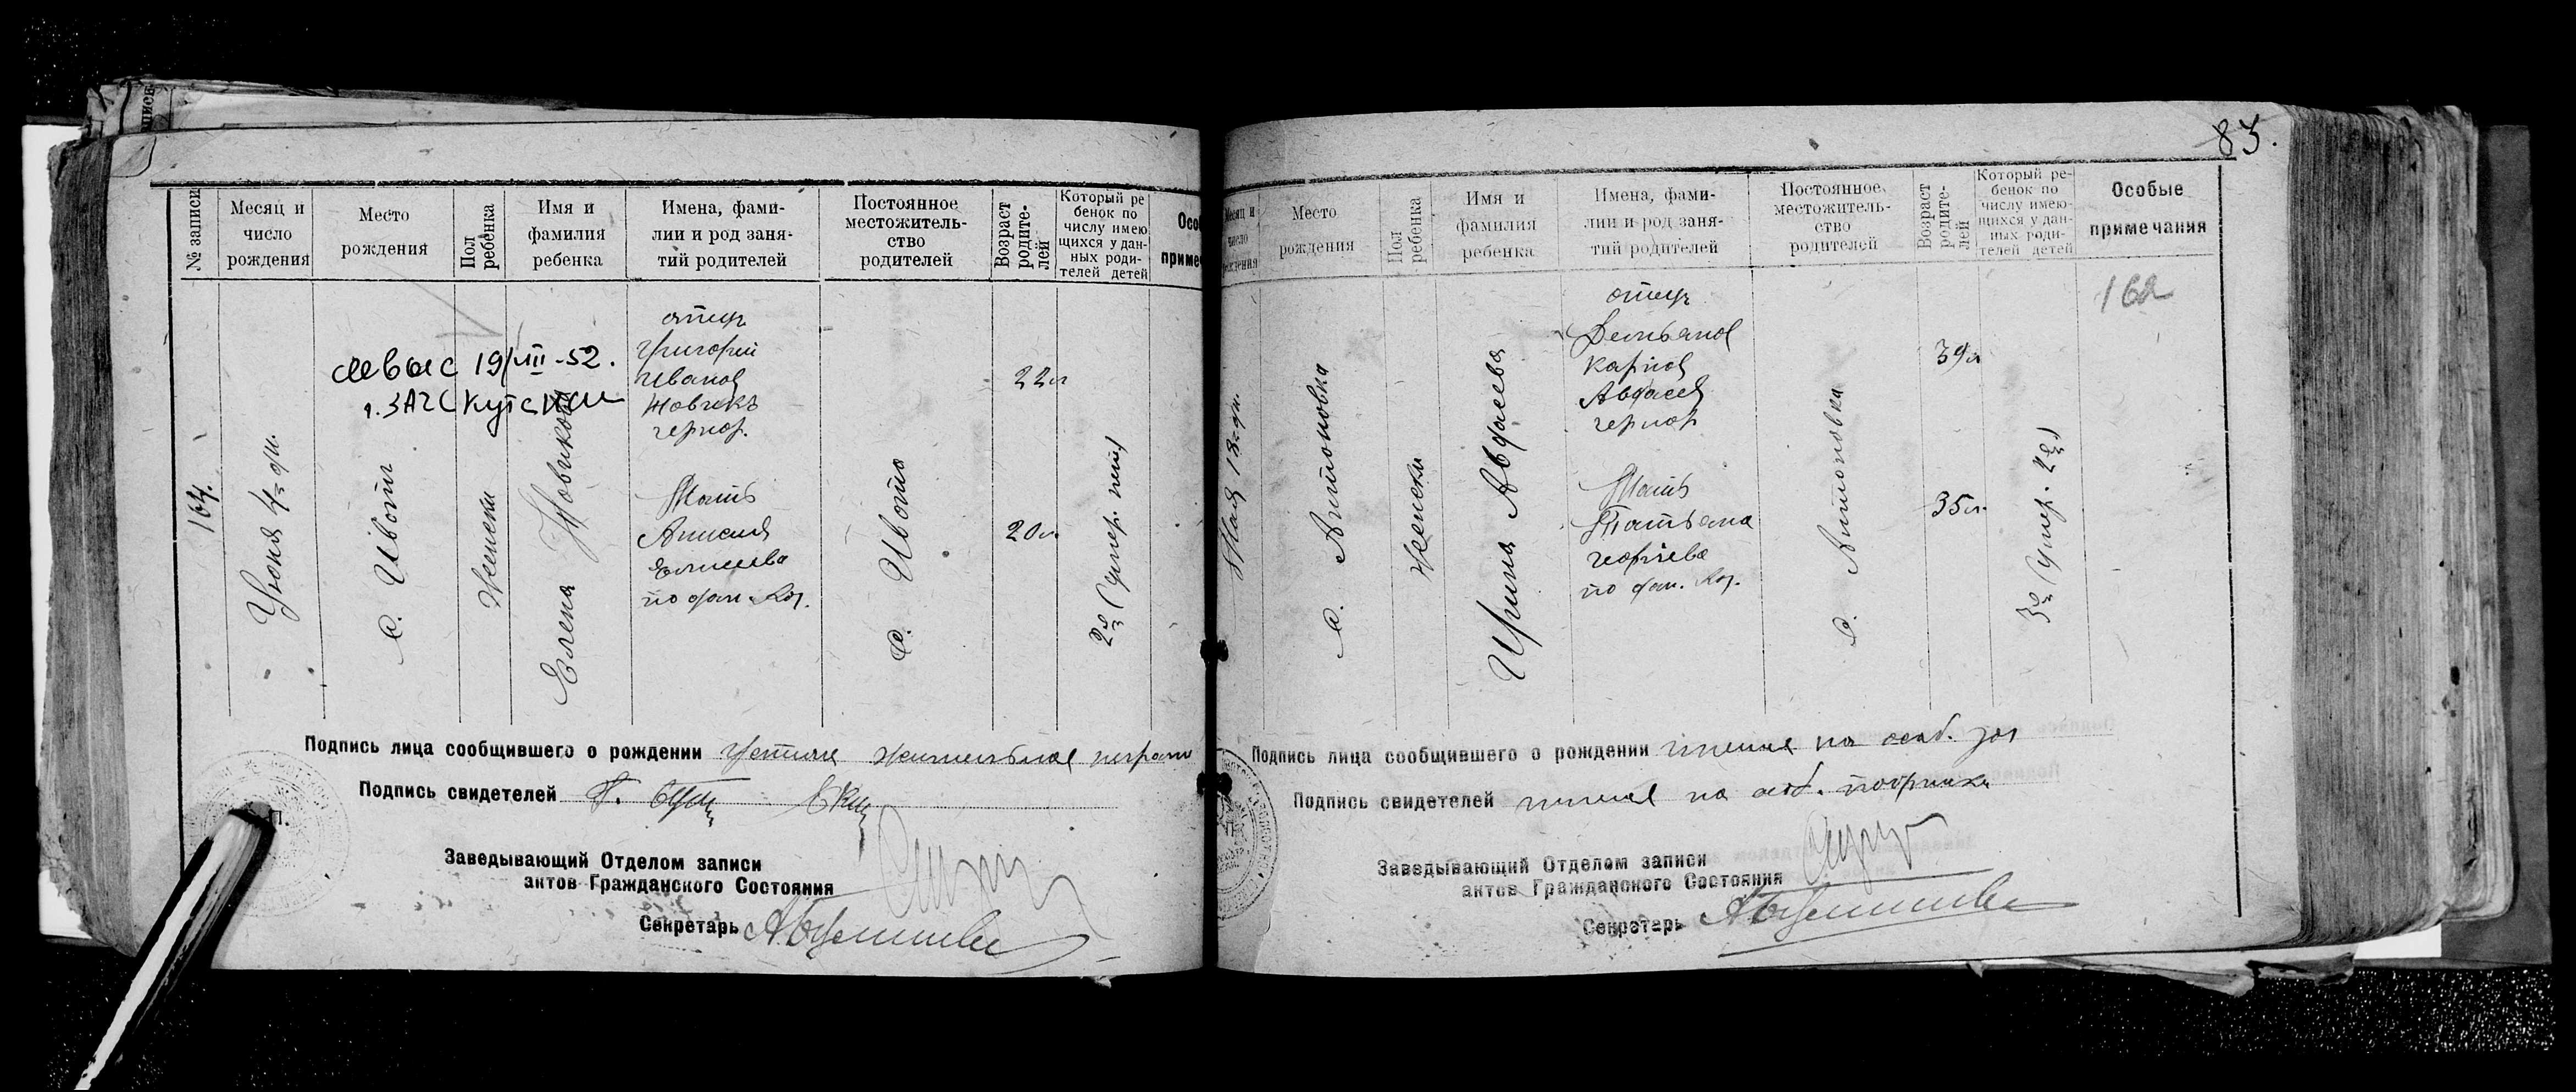 № записи
Месяц и число рождения
Место рождения
Пол ребенка
Имя и фамилия ребенка
Имена, фами-
лии и род заня-
тий родителей
Постоянное
местожитель-
ство
родителей
Возраст родите-
лей
Который ре
бенок по
числу имею
щихся у дан-
ных роди-
телей детей
Осо
приме
164.
Июня 4го дн.
с. Ивот
Женски
Елена Новикова
19/VIII-52.
отец
Григорий
Иванов
Новиков
чернор.
Мать
Анисия
Елисеева
по фам.
с. Ивот
22л
20л.
2й (умер. нет)
Подпись лица сообщившего о рождении
Подпись свидетелей
П.
Заведывающий Отделом записи
актов Гражданского Состояния
Секретарь
83.
Месяц и
число
рождения
Место
рождения
Пол
ребенка
Имя и
фамилия
ребенка
Имена, фами-
лии и род заня-
тий родителей
Постоянное
местожитель-
ство
родителей
Возраст
родите-
лей
Который ре-
бенок по
числу имею-
щихся у дан-
ных роди-
телей детей
Особые
примечания
162
Мая 13го дн.
с. Антоновка
Женски
Ирина Авдеева
отец
Демьянов
Карпов
Авдеев
чернор
Мать
Татьяна
Георгиева
по фам.
с. Антоновка
39л
35л.
3й (умер. 2й)
Подпись лица сообщившего о рождении имеется на особ.
Подпись свидетелей имеется на особ.
Заведывающий Отделом записи
актов Гражданского Состояния
Секретарь